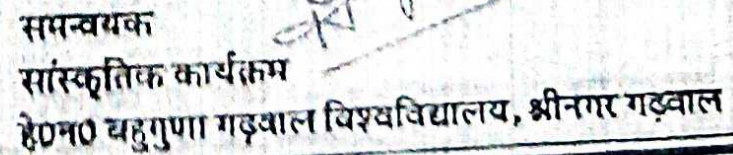 समन्वयक
सांस्कृतिक कार्यक्रम
हे0न0 बहुगुणा गढ़वाल विश्वविद्यालय, श्रीनगर गढ़वाल